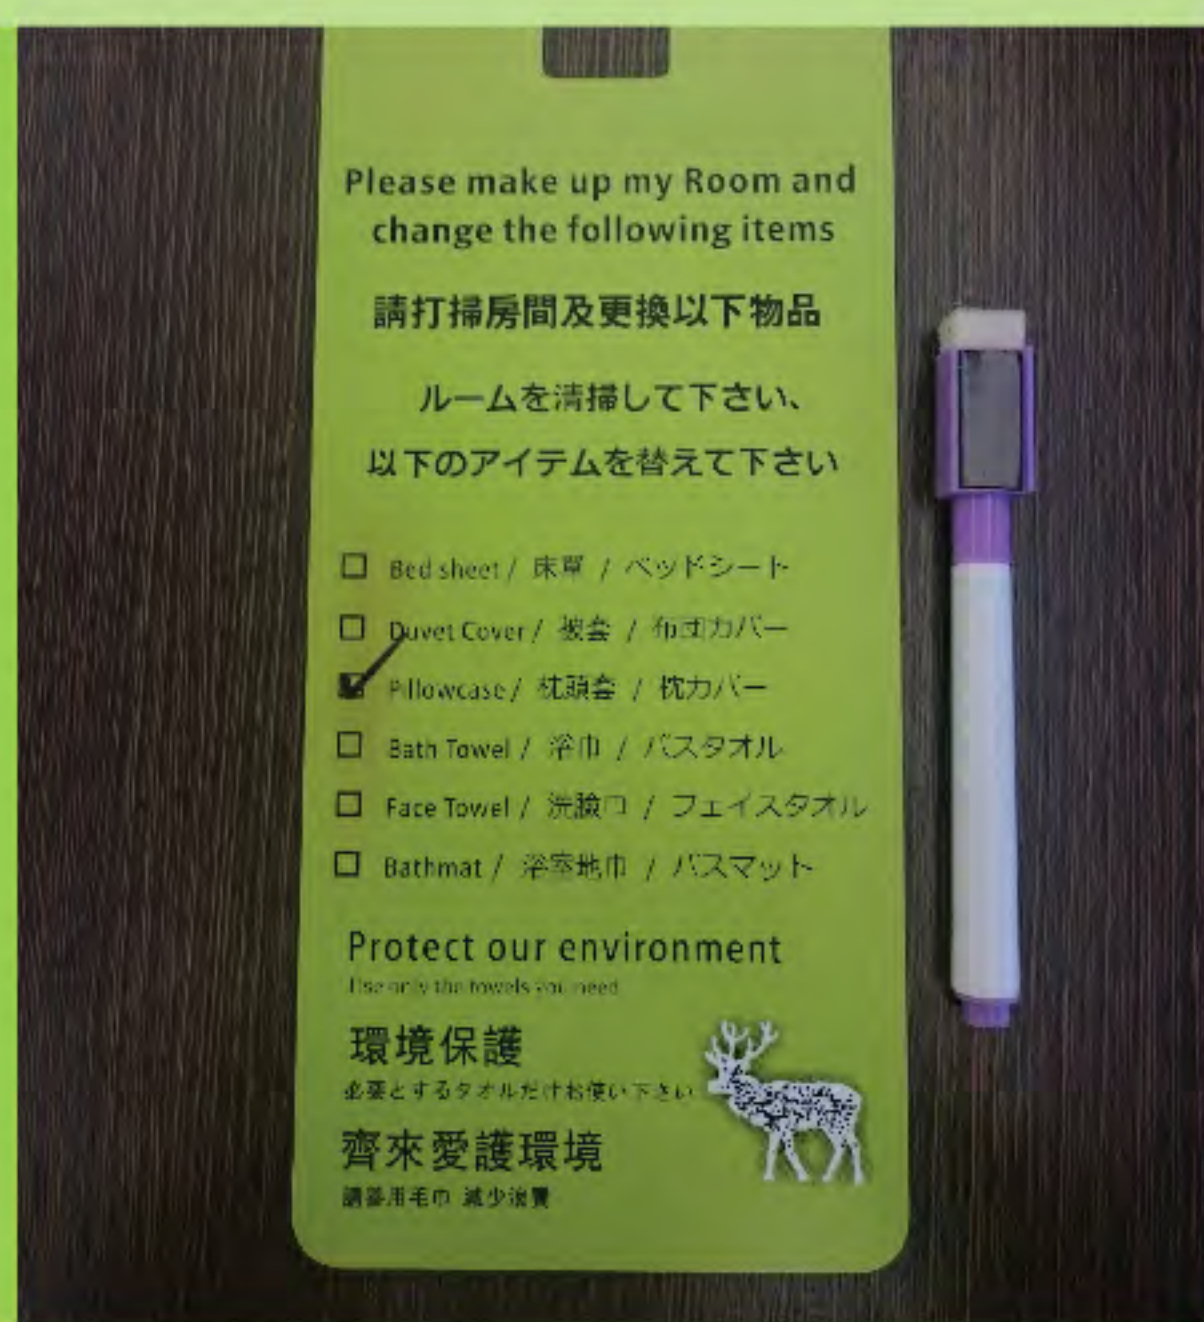 Please make up my Room and
change the following items
請打掃房間及更換以下物品
ルームを清掃して下さい、
以下のアイテムを替えて下さい
☐ Bed sheet / 床單 / ベッドシート
☐ Duvet Cover / 被套 / 布団カバー
☑ Pillowcase / 枕頭套 / 枕カバー
☐ Bath Towel / 浴巾 / バスタオル
☐ Face Towel / 洗臉巾 / フェイスタオル
☐ Bathmat / 浴室地巾 / バスマット
Protect our environment
Use only the towels you need
環境保護
必要とするタオルだけお使い下さい
齊來愛護環境
請善用毛巾 減少浪費